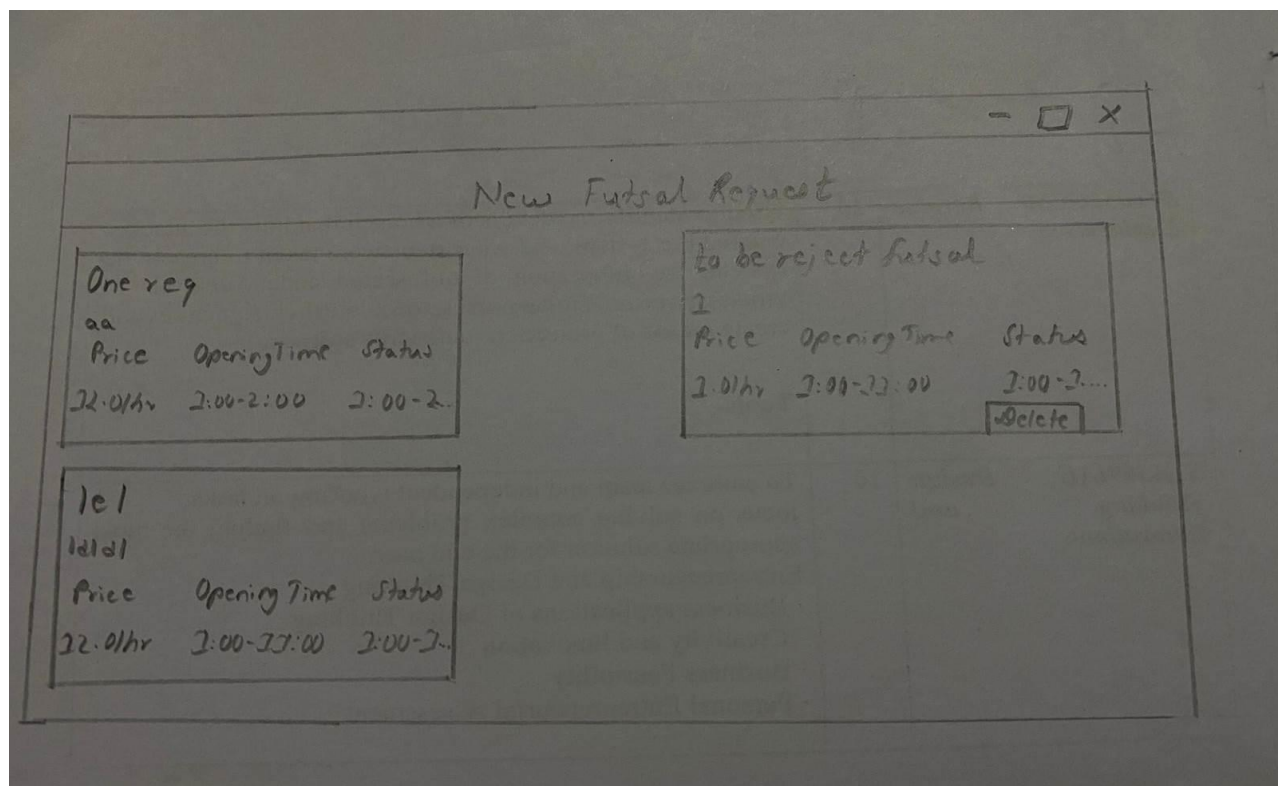 New Futsal Request
One req
aa
Price Opening Time Status
12.0/hr 1:00-2:00 1:00-2..
lel
Price Opening Time Status
12.0/hr 1:00-11:00 1:00-1..
to be reject futsal
1
Price Opening Time Status
1.0/hr 1:00-11:00 1:00-1....
Delete